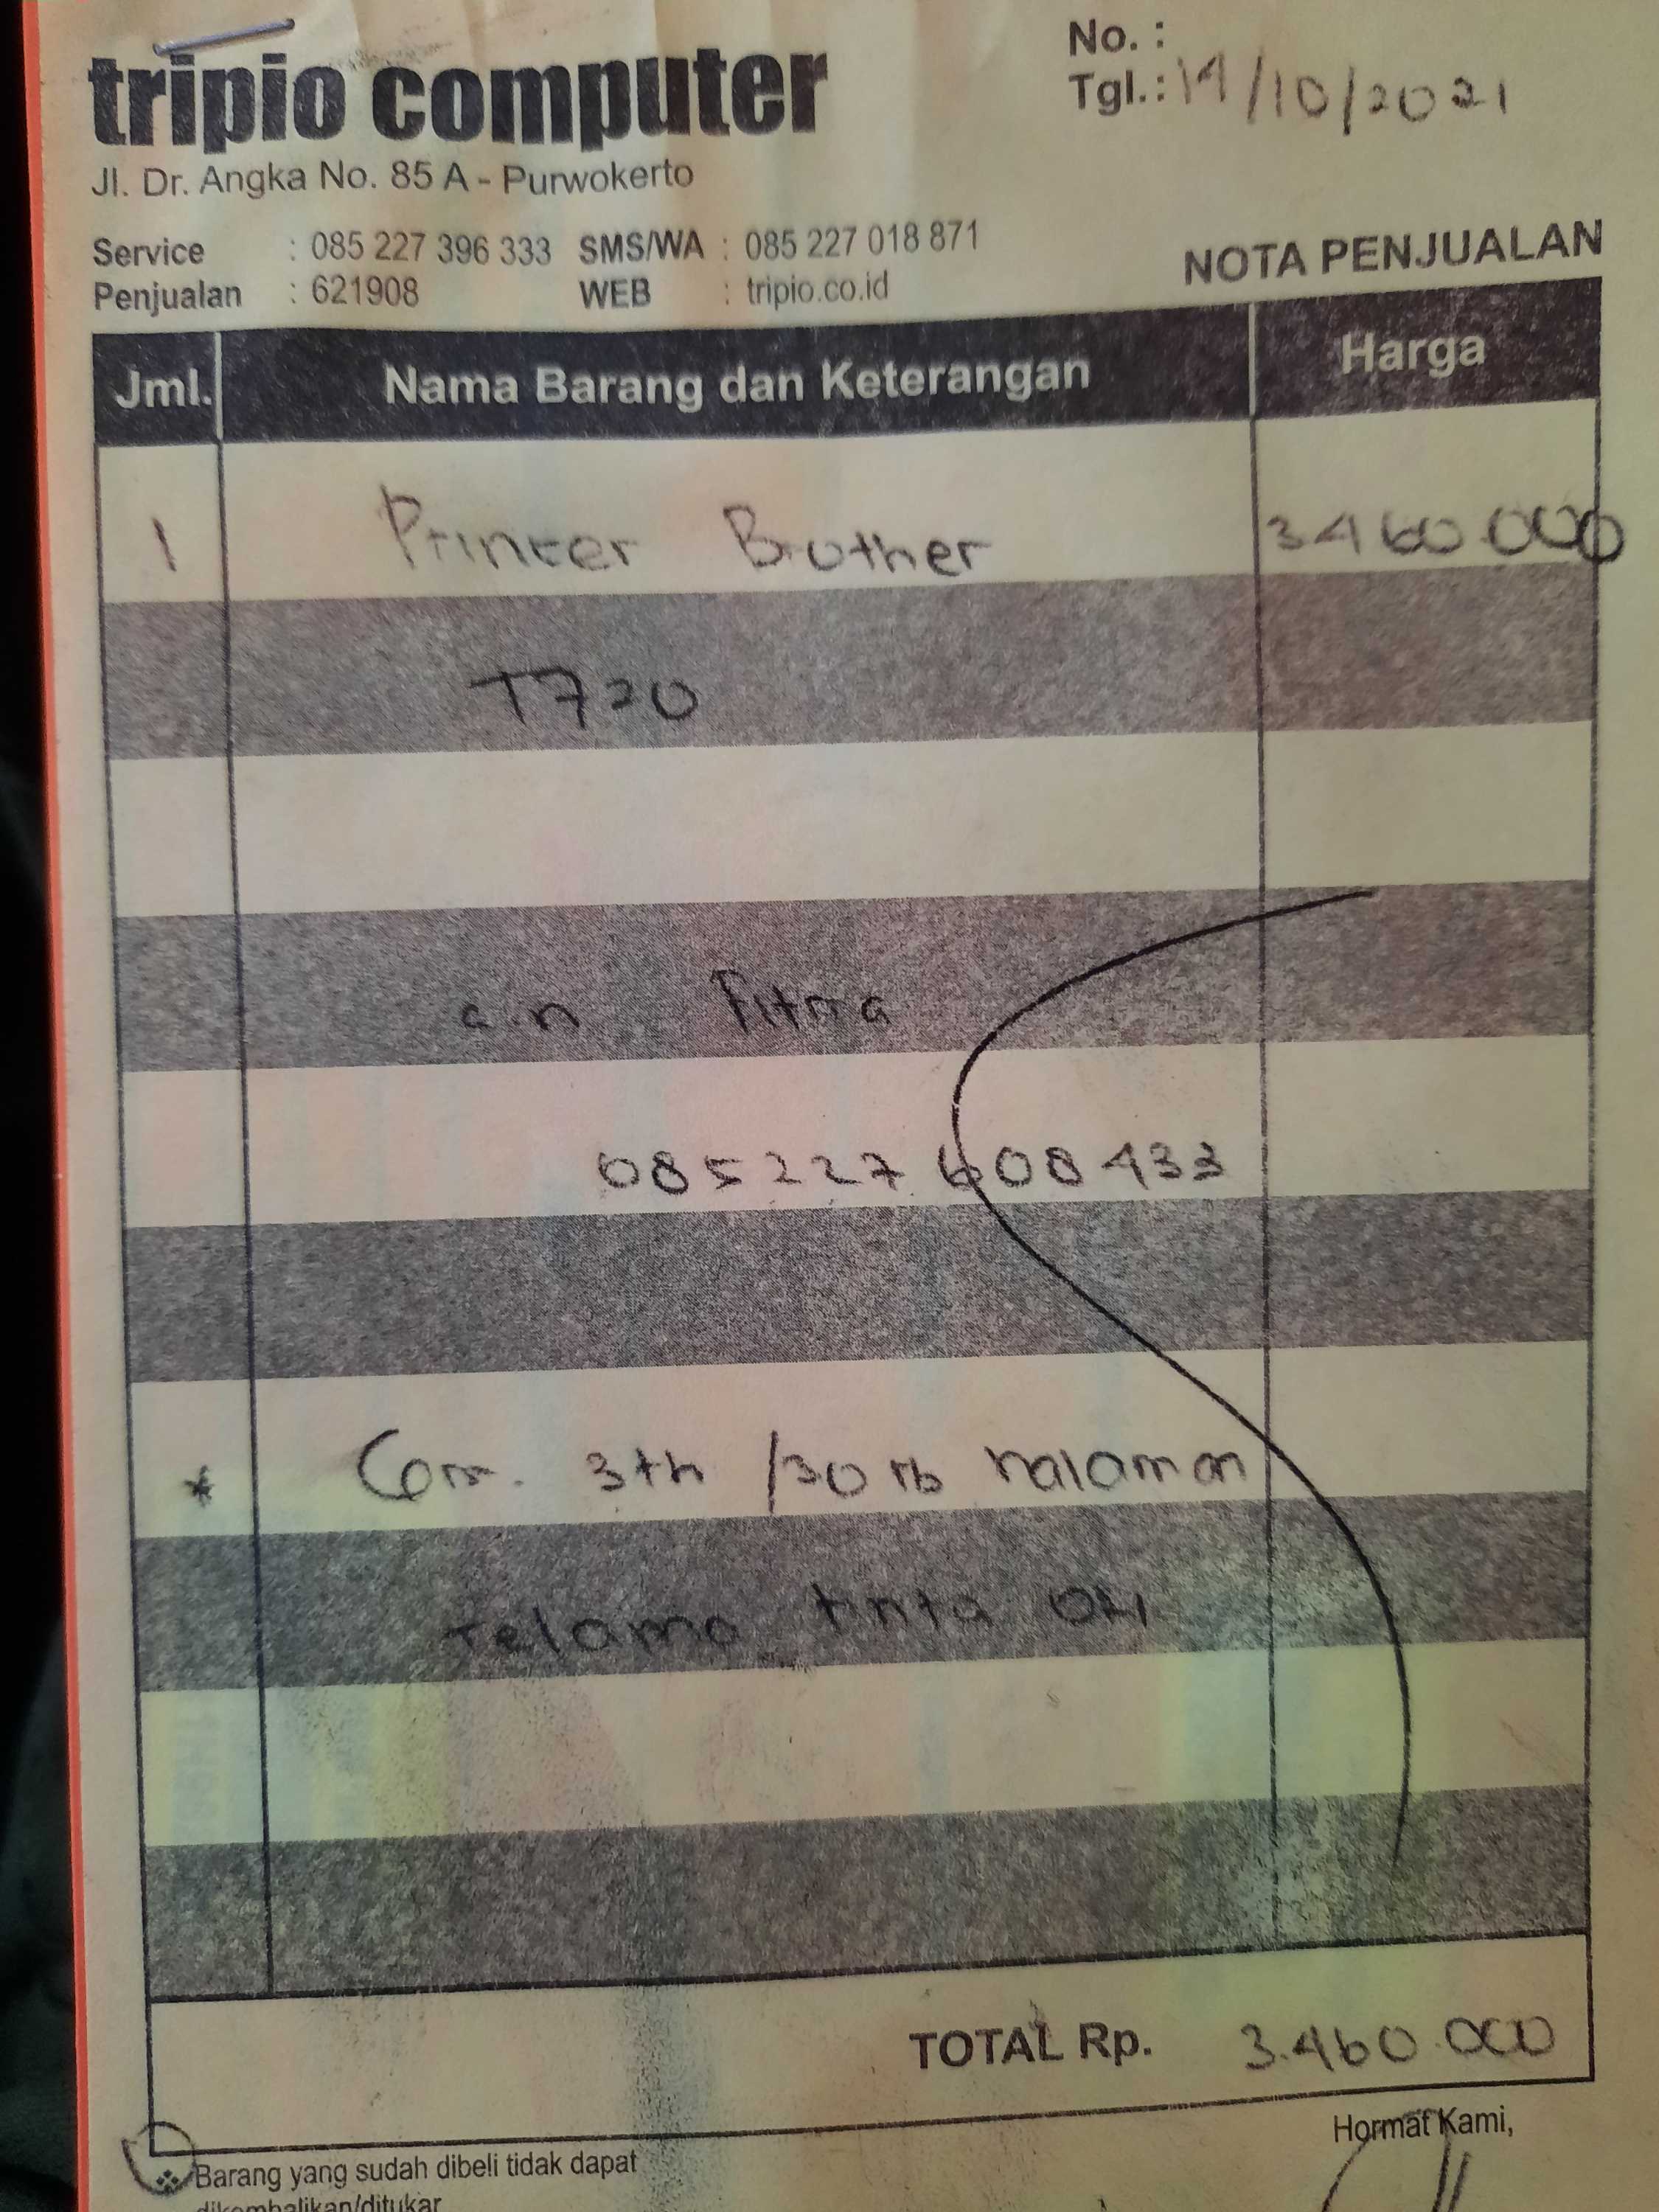 tripio computer
No. :
Tgl. : 14/10/2021
Jl. Dr. Angka No. 85 A - Purwokerto
Service : 085 227 396 333 SMS/WA : 085 227 018 871
Penjualan : 621908 WEB : tripio.co.id
NOTA PENJUALAN
Jml. Nama Barang dan Keterangan Harga
1 Printer Brother 3.460.000
T720
a.n Fitria
085227608433
* Garr. 3th /30 rb halaman
selama tinta ori
TOTAL Rp. 3.460.000
Hormat Kami,
Barang yang sudah dibeli tidak dapat
dikembalikan/ditukar